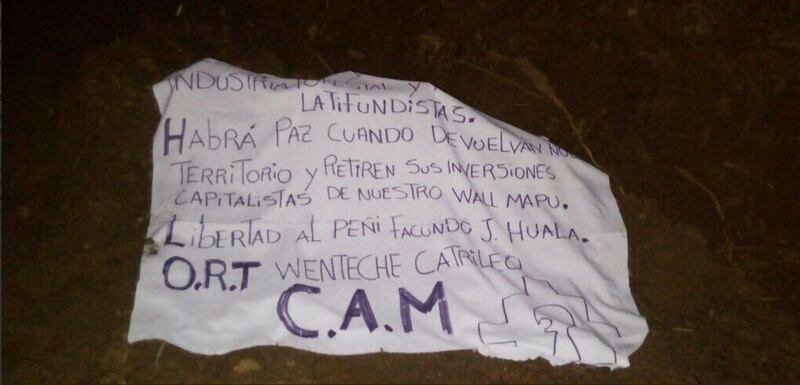 INDUSTRIA FORESTAL Y
LATIFUNDISTAS.
HABRÁ PAZ CUANDO DEVUELVAN
TERRITORIO Y RETIREN SUS INVERSIONES
CAPITALISTAS DE NUESTRO WALL MAPU.
LIBERTAD AL PEÑI FACUNDO J. HUALA.
O.R.T WENTECHE CATRILEO
C.A.M